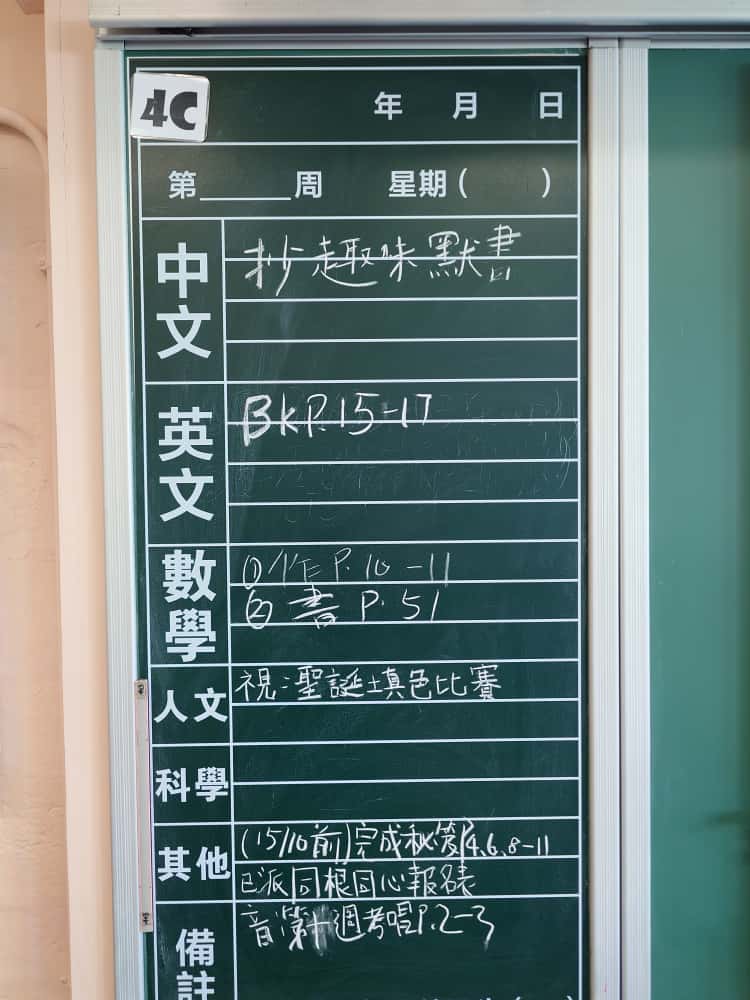 4C
年 月 日
第______周 星期( )
中文
抄趣味默書
英文
BkP.15-17
數學
①作P.10-11
②書P.51
人文
視:聖誕填色比賽
科學
其他
(15/10前)完成秘笈P.4、6、8-11
已派同根同心報名表
備註
音:第十週考唱P.2-3